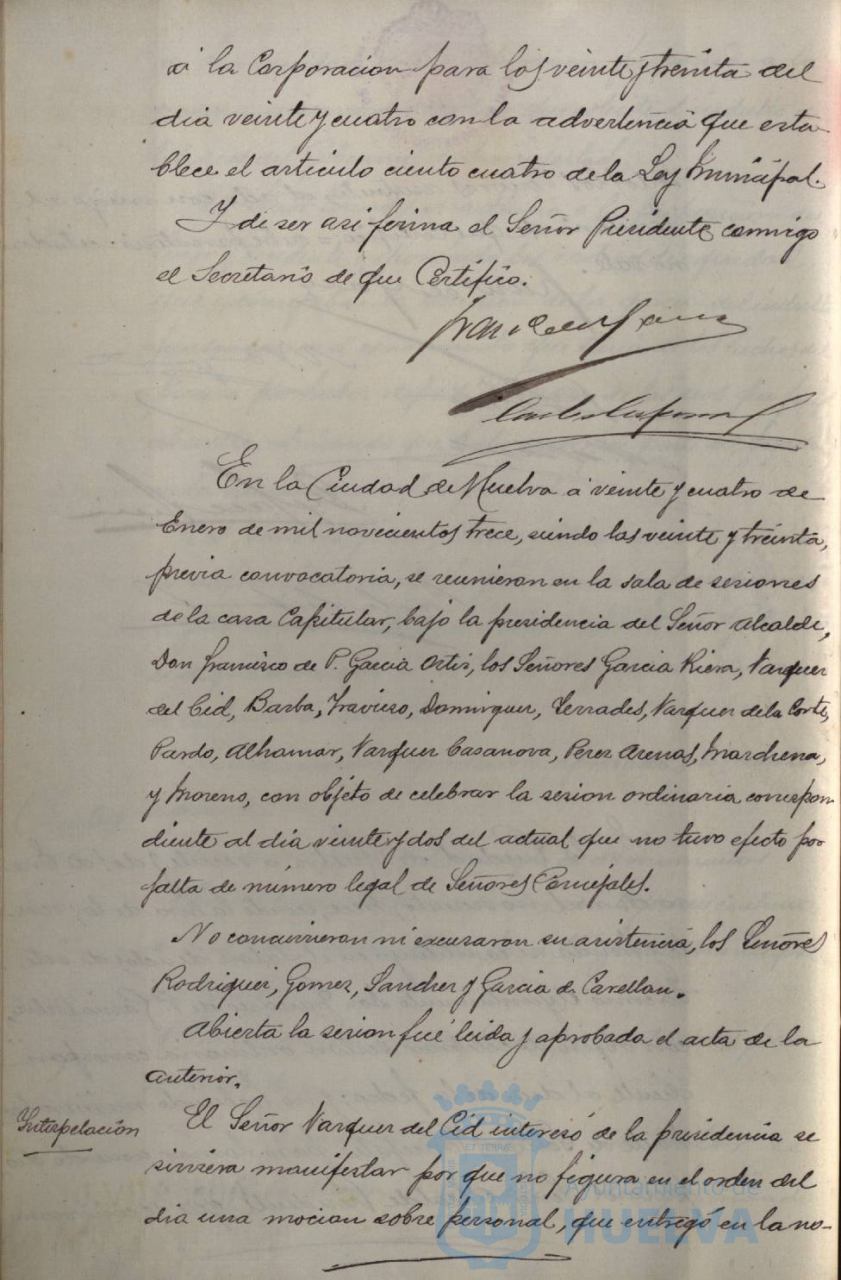 á la Corporacion para los veinte y treinta del
dia veinte y cuatro con la advertencia que esta-
blece el articulo ciento cuatro de la Ley Municipal.
Y de ser asi firma el Señor Presidente conmigo
el Secretario de que Certifico.
En la Ciudad de Huelva á veinte y cuatro de
Enero de mil novecientos trece, siendo las veinte y treinta,
previa convocatoria, se reunieron en la sala de sesiones
de la casa Capitular, bajo la presidencia del Señor Alcalde,
Don Francisco de P. Garcia Ortiz, los Señores Garcia Riera, Vazquez
del Cid, Barba, Travieso, Dominguez, Terrades, Vazquez de la Corte,
Pardo, Alhamar, Vazquez Casanova, Perez Arenas, Marchena,
y Moreno, con objeto de celebrar la sesion ordinaria correspon-
diente al dia veinte y dos del actual que no tuvo efecto por
falta de número legal de Señores Concejales.
No concurrieron ni excusaron su asistencia, los Señores
Rodriguez, Gomez, Sanchez y Garcia de
Abierta la sesion fué leida y aprobada el acta de la
anterior.
Interpelación
El Señor Vazquez del Cid interesó de la presidencia se
sirviera manifestar por que no figura en el orden del
dia una mocion sobre personal, que entregó en la no-
Ayuntamiento de
HUELVA